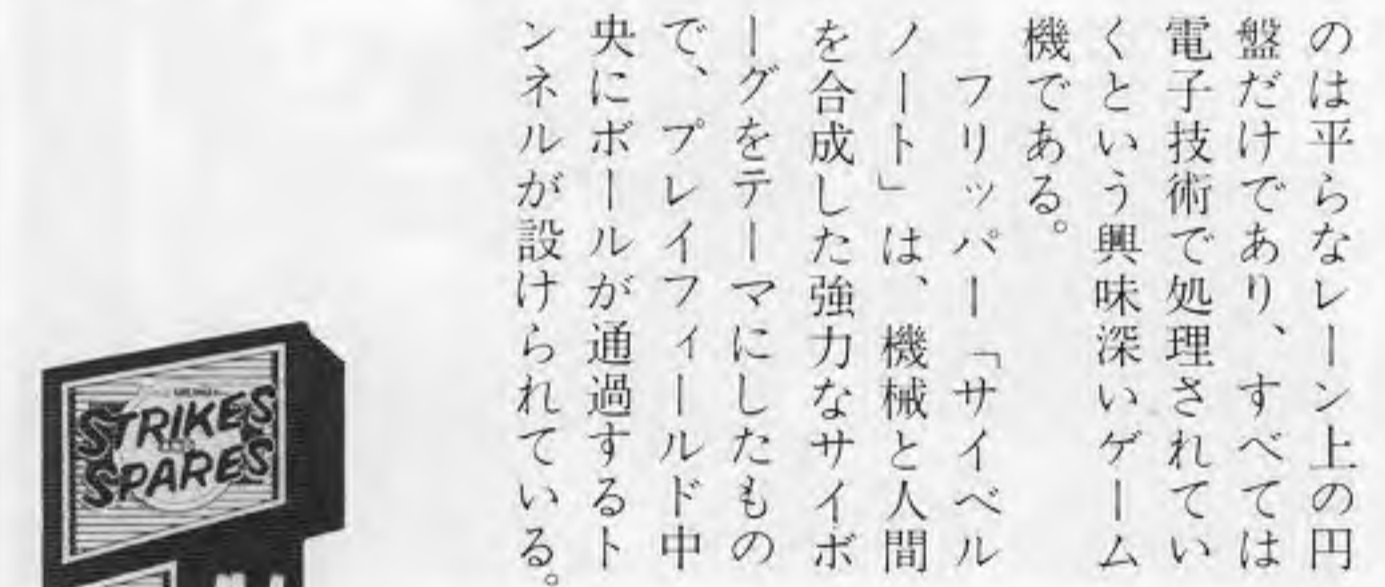 のは平らなレーン上の円
盤だけであり、すべては
電子技術で処理されてい
くという興味深いゲーム
機である。
フリッパー「サイベル
ノート」は、機械と人間
を合成した強力なサイボ
ーグをテーマにしたもの
で、プレイフィールド中
央にボールが通過するト
ンネルが設けられている。
STRIKES
SPARES